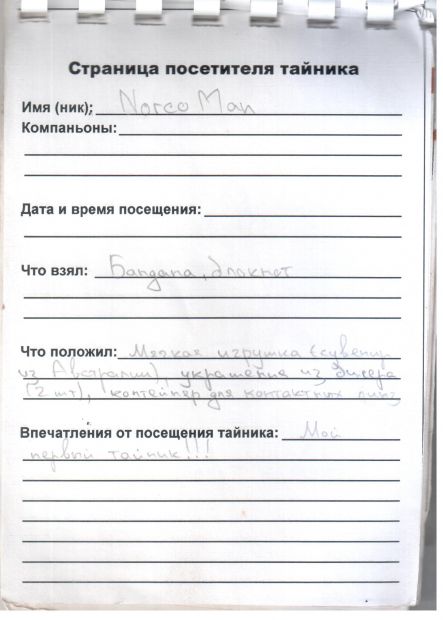 Страница посетителя тайника
Имя (ник): Norco Man
Компаньоны:
Дата и время посещения:
Что взял: Бандана, блокнот
Что положил: Мягкая игрушка (сувенир
из Австралии), украшение из бисера
(2 шт), контейнер для контактных линз
Впечатления от посещения тайника: Мой
первый тайник!!!